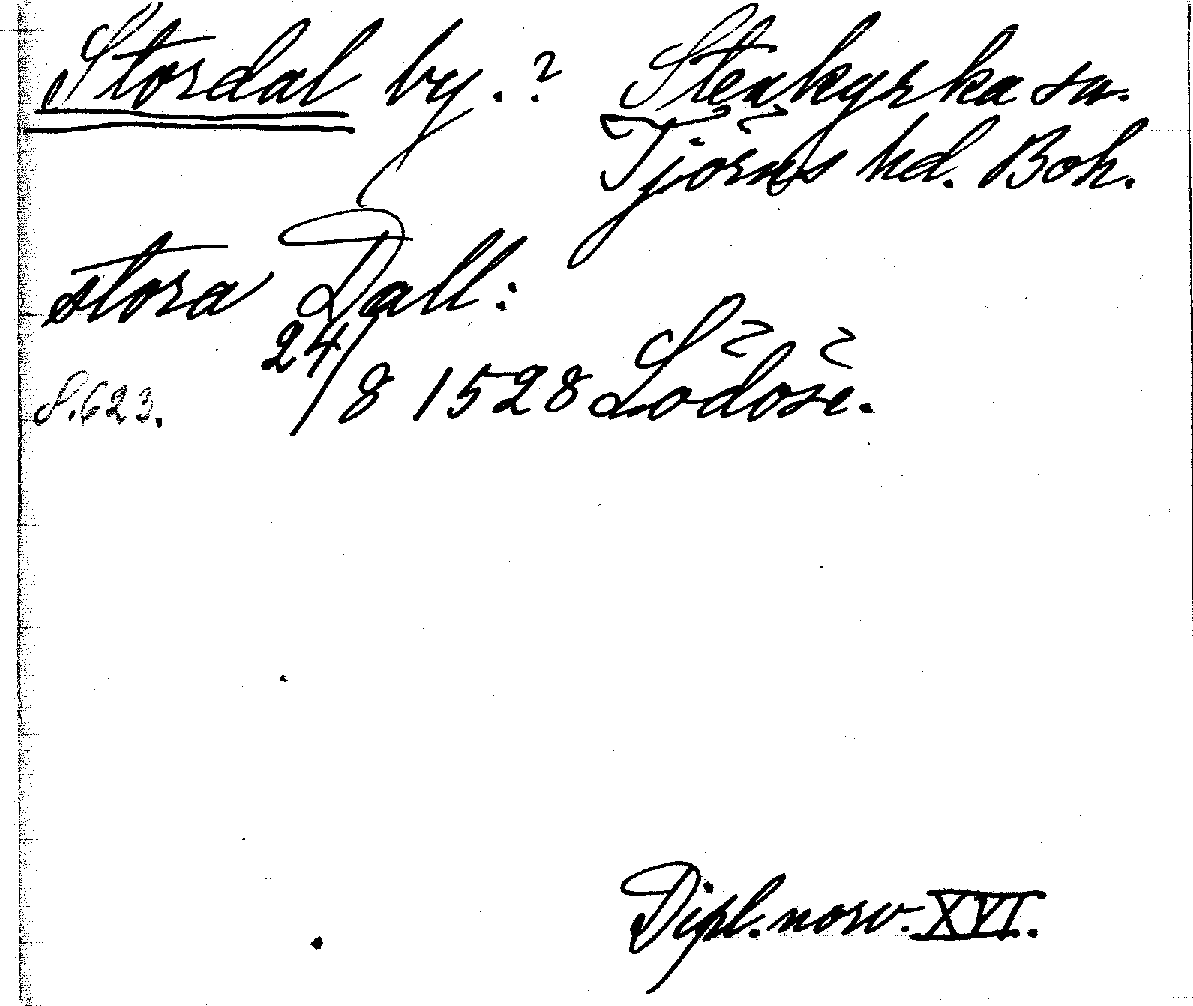 Stordal by.? Stenkyrka sn.
Tjörns hd. Boh.
stora Dall:
24/8 1528 Lödöse.
S.623.
Dipl. norv. XVI.